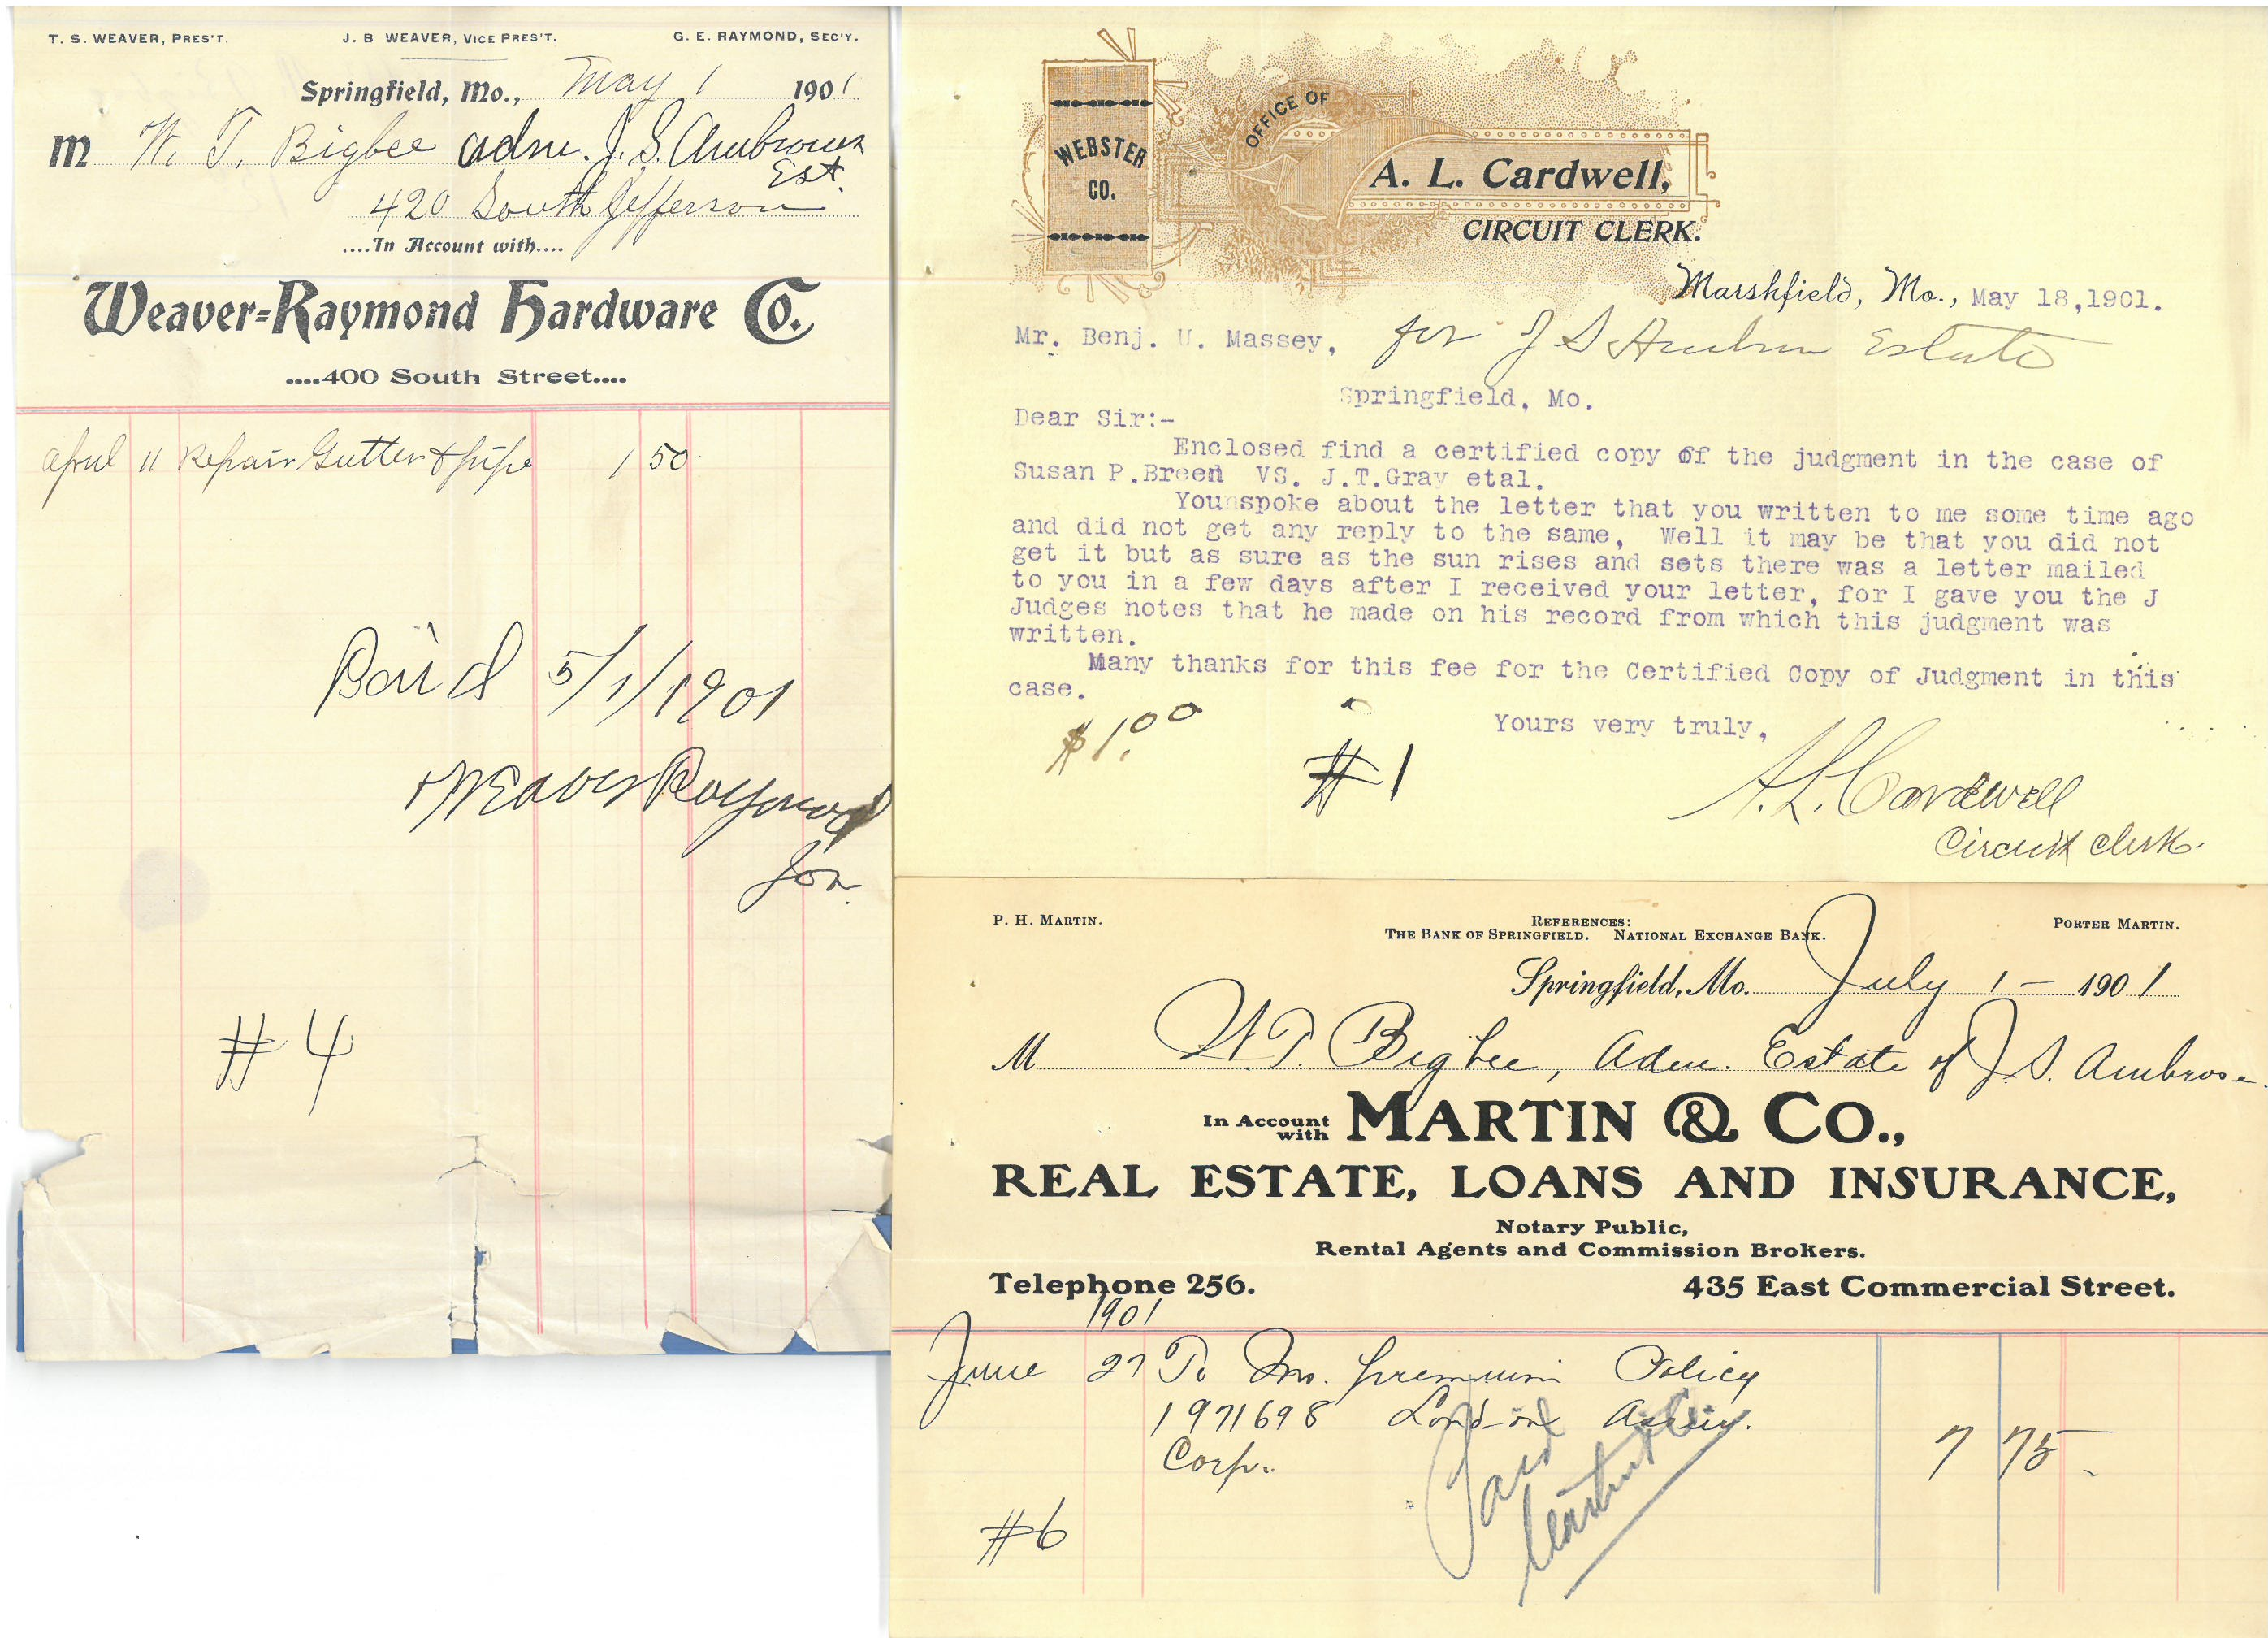 T. S. WEAVER, PRES'T. J. B WEAVER, VICE PRES'T. G. E. RAYMOND, SEC'Y.
Springfield, Mo., May 1 1901
M W. T. Bigbee adm. J. S. Ambrose
Est.
420 South Jefferson
....In Account with....
Weaver=Raymond Hardware Co.
....400 South Street....
April 11 Repair Gutter & pipe 1 50
Paid 5/1/1901
Weaver Raymond
#4
WEBSTER
CO.
OFFICE OF
A. L. Cardwell,
CIRCUIT CLERK.
Marshfield, Mo., May 18,1901.
Mr. Benj. U. Massey, for J S Ambrose Estate
Springfield, Mo.
Dear Sir:-
Enclosed find a certified copy of the judgment in the case of
Susan P.Breen VS. J.T.Gray etal.
Younspoke about the letter that you written to me some time ago
and did not get any reply to the same, Well it may be that you did not
get it but as sure as the sun rises and sets there was a letter mailed
to you in a few days after I received your letter, for I gave you the J
Judges notes that he made on his record from which this judgment was
written.
Many thanks for this fee for the Certified Copy of Judgment in this
case.
Yours very truly,
$1.00
#1
A. L. Cardwell
Circuit Clerk.
P. H. MARTIN. REFERENCES: PORTER MARTIN.
THE BANK OF SPRINGFIELD. NATIONAL EXCHANGE BANK.
Springfield, Mo. July 1 - 1901
M W. T. Bigbee, Adm. Estate of J. S. Ambrose
In Account with MARTIN & CO.,
REAL ESTATE, LOANS AND INSURANCE,
Notary Public,
Rental Agents and Commission Brokers.
Telephone 256. 435 East Commercial Street.
1901
June 27 To Ins. premium Policy
1971698 London Assur.
Corp. 7 75
Paid
Martin & Co
#6